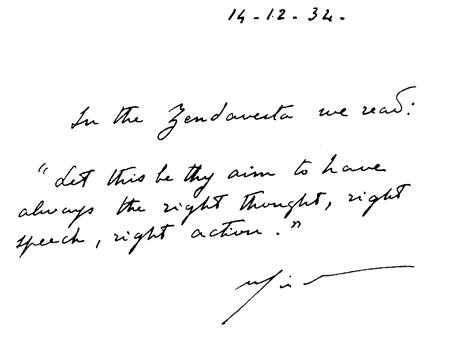 14-12-34.
In the Zendavesta we read:
“Let this be thy aim to have
always the right thought, right
speech, right action.”